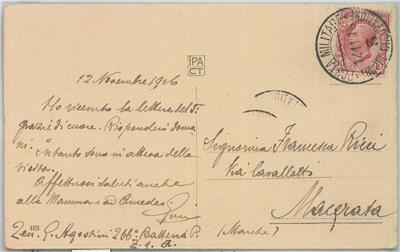 IPA
CT
POSTA MILITARE
12 Novembre 1916
Ho ricevuto la lettera del 9.
grazie di cuore. Risponderò doma-
ni e intanto sono in attesa della
visita.
Affettuosi saluti anche
alla Mamma ed Amedeo.
483
Ten. G. Agostini 266ª Batteria P.
Z. 1. A.
Signorina Francesca Ricci
Via Cavallotti
Macerata
(Marche)